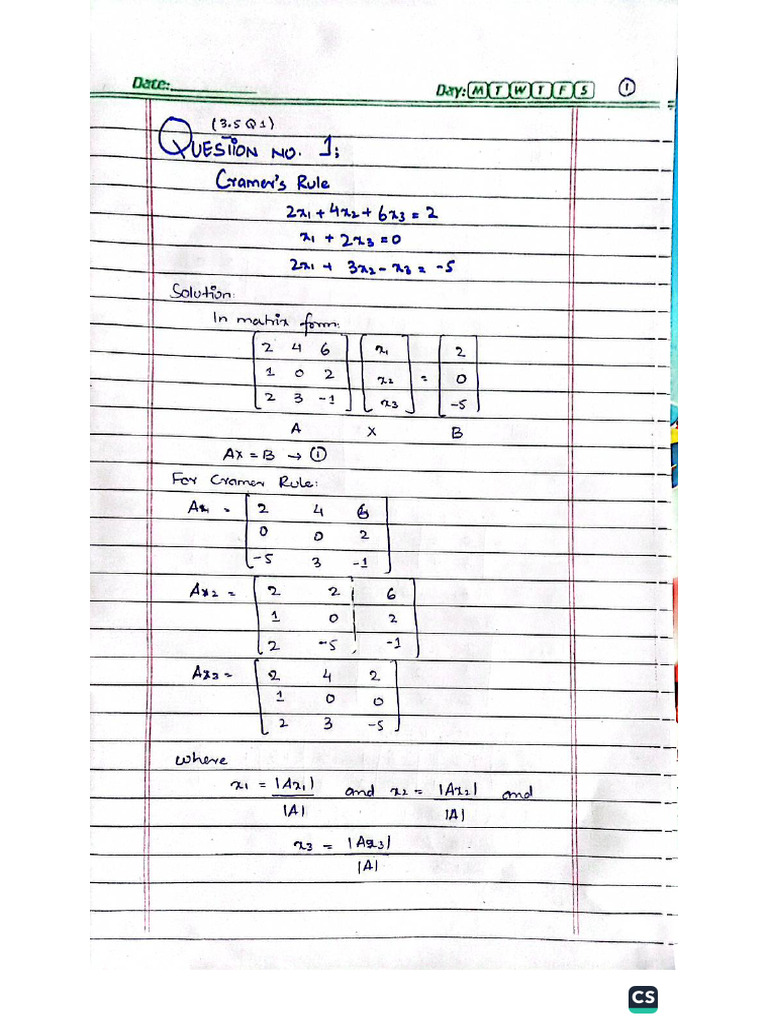 Date:
Day: M T W T F S 1
(3.5 Q1)
QUESTION NO. 1;
Cramer's Rule
2x1 + 4x2 + 6x3 = 2
x1 + 2x3 = 0
2x1 + 3x2 - x3 = -5
Solution:
In matrix form:
2 4 6 x1 2
1 0 2 x2 = 0
2 3 -1 x3 -5
A X B
AX = B → 1
For Cramer Rule:
Ax1 = 2 4 6
0 0 2
-5 3 -1
Ax2 = 2 2 6
1 0 2
2 -5 -1
Ax3 = 2 4 2
1 0 0
2 3 -5
where
x1 = |Ax1| and x2 = |Ax2| and
|A| |A|
x3 = |Ax3|
|A|
CS